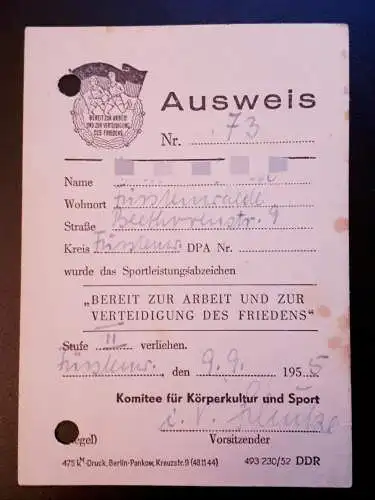 BEREIT ZUR ARBEIT
UND ZUR VERTEIDIGUNG
DES FRIEDENS
Ausweis
Nr. 73
Name
Wohnort Fürstenwalde
Straße Beethovenstr. 9
Kreis Fürstenw. DPA Nr.
wurde das Sportleistungsabzeichen
„BEREIT ZUR ARBEIT UND ZUR
VERTEIDIGUNG DES FRIEDENS"
Stufe II verliehen.
Fürstenw., den 9. 9. 1955
Komitee für Körperkultur und Sport
i. V.
egel) Vorsitzender
-Druck, Berlin-Pankow, Kreuzstr. 9 (481144) 493 230/52 DDR